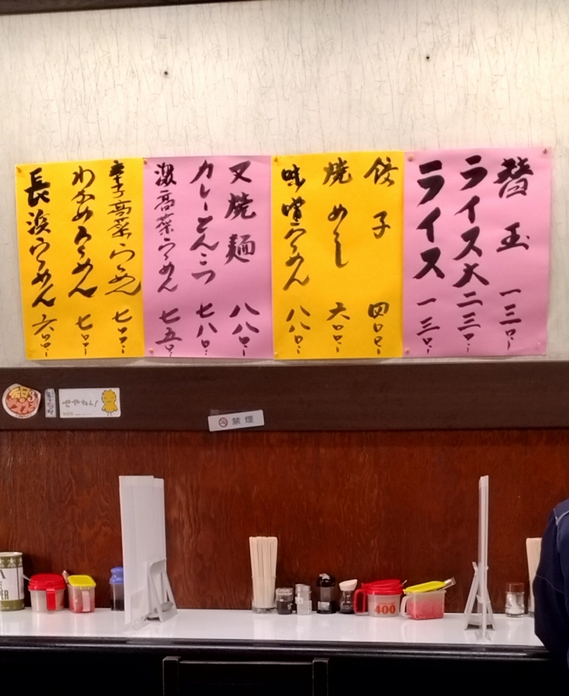 替玉 一三〇-
ライス大 二三〇-
ライス 一三〇-
餃子 四〇〇-
焼めし 六〇〇-
味噌らうめん 八八〇-
叉焼麺 八八〇-
カレーとんこつ 七八〇-
激高菜らうめん 七五〇-
辛子高菜らうめん 七〇〇-
わかめらうめん 七〇〇-
長浜らうめん 六〇〇-
せやねん!
禁煙
400